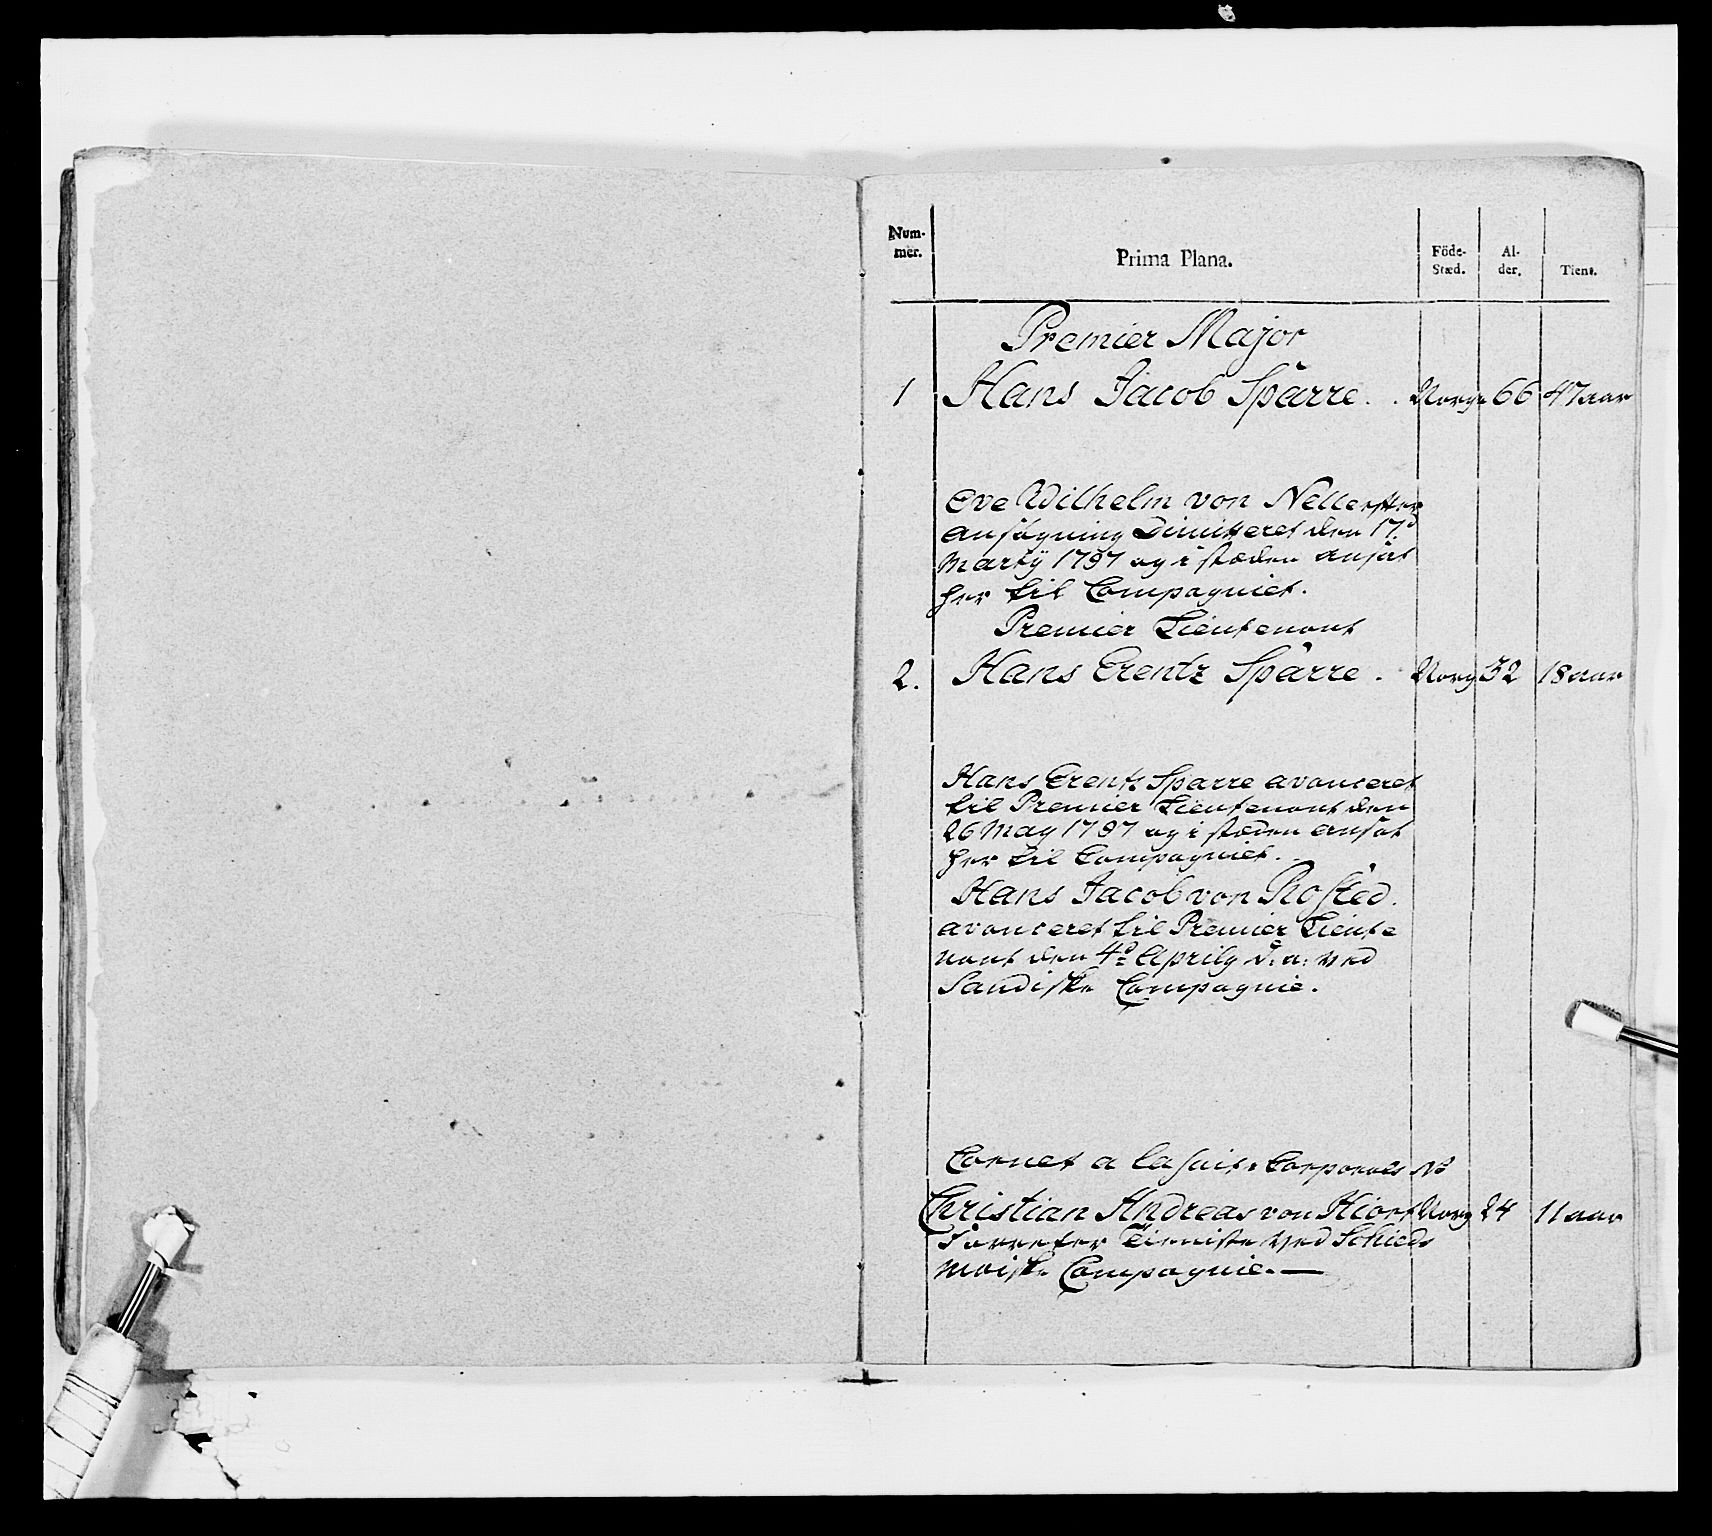 Num-
mer.
Prima Plana.
Föde-
Stæd.
Al-
der.
Tient.
Premier Major
1 Hans Jacob Sparre . . Norge 66 47 aar
Ove Wilhelm von Neller efter
ansøgning Dimitteret den 17d
Marty 1797 og i stæden ansat
her til Compagniet.
Premier Lieutenant
2. Hans Erentz Sparre . Norg 32 18 aar
Hans Erentz Sparre avanceret
til Premier Lieutenant den
26 May 1797 og i stæden ansat
her til Compagniet.
Hans Jacob von Rosted.
avanceret til Premier Lieute
nant den 4d Aprily d: a: ved
Sandiske Compagnie.
Cornet a la suite Corporals No
Christian Andreas von Hiort Norg 24 11 aar
forretter Tieniste ved Schieds
moiske Compagnie. —